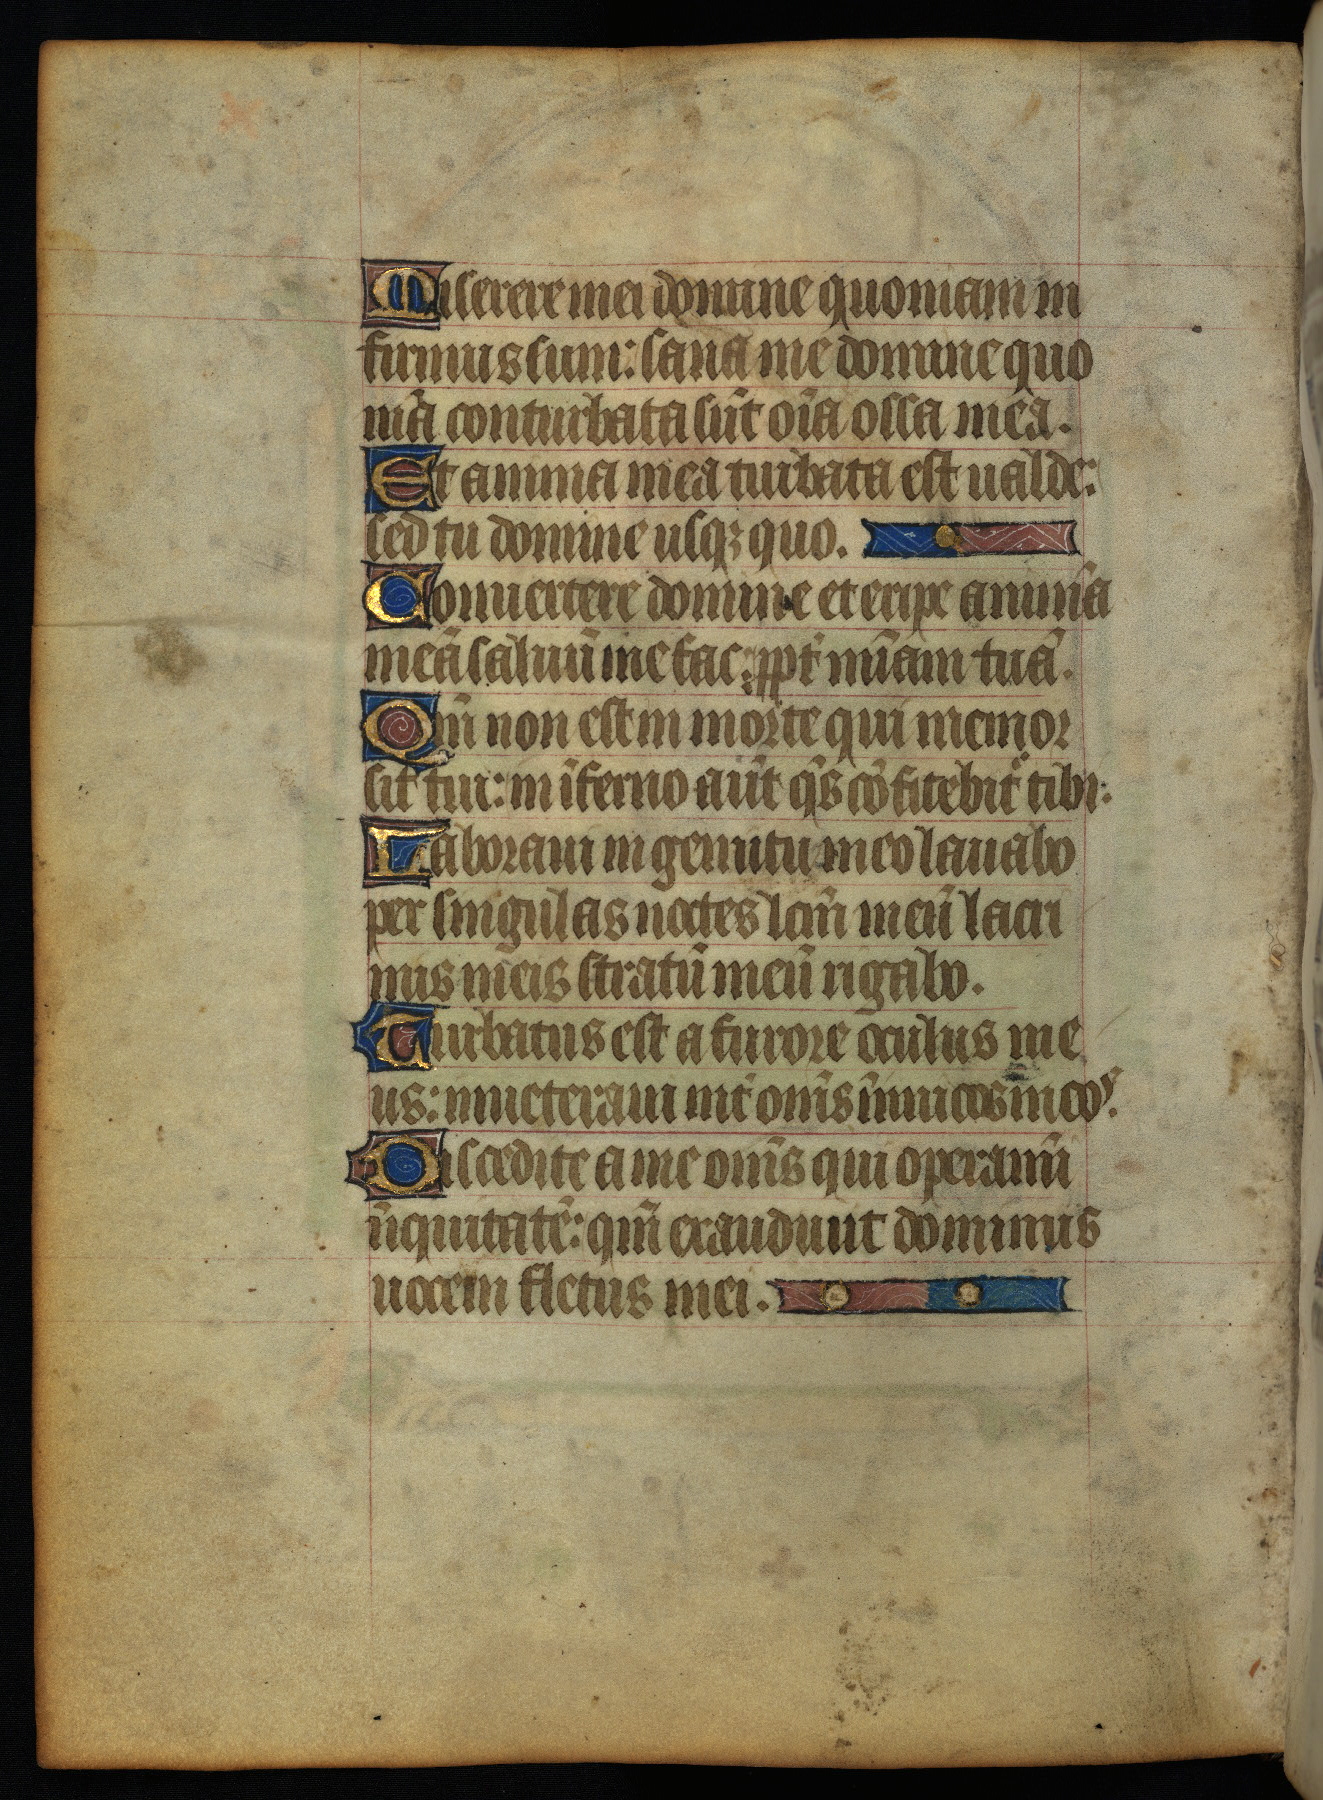 Miserere mei domine quoniam in
firmus sum: sana me domine quo
niā conturbata sūt oīa ossa mea.
Et anima mea turbata est ualde:
sed tu domine usqꝫ quo.
Conuertere domine et eripe animā
meā saluū me fac: ꝓpt̄ mīam tuā.
Qm̄ non est in morte qui memor
sit tui: in īferno aūt q̄s cōfitebit᷑ tibi.
Laboraui in gemitu meo lauabo
per singulas noctes lcm̄ meū lacri
mis meis stratū meū rigabo.
Turbatus est a furore oculus me
us: inueteraui int̄ om̄s inimicos meoˢ.
Discedite a me om̄s qui operamī
īiquitatē: qm̄ exaudiuit dominus
uocem fletus mei.